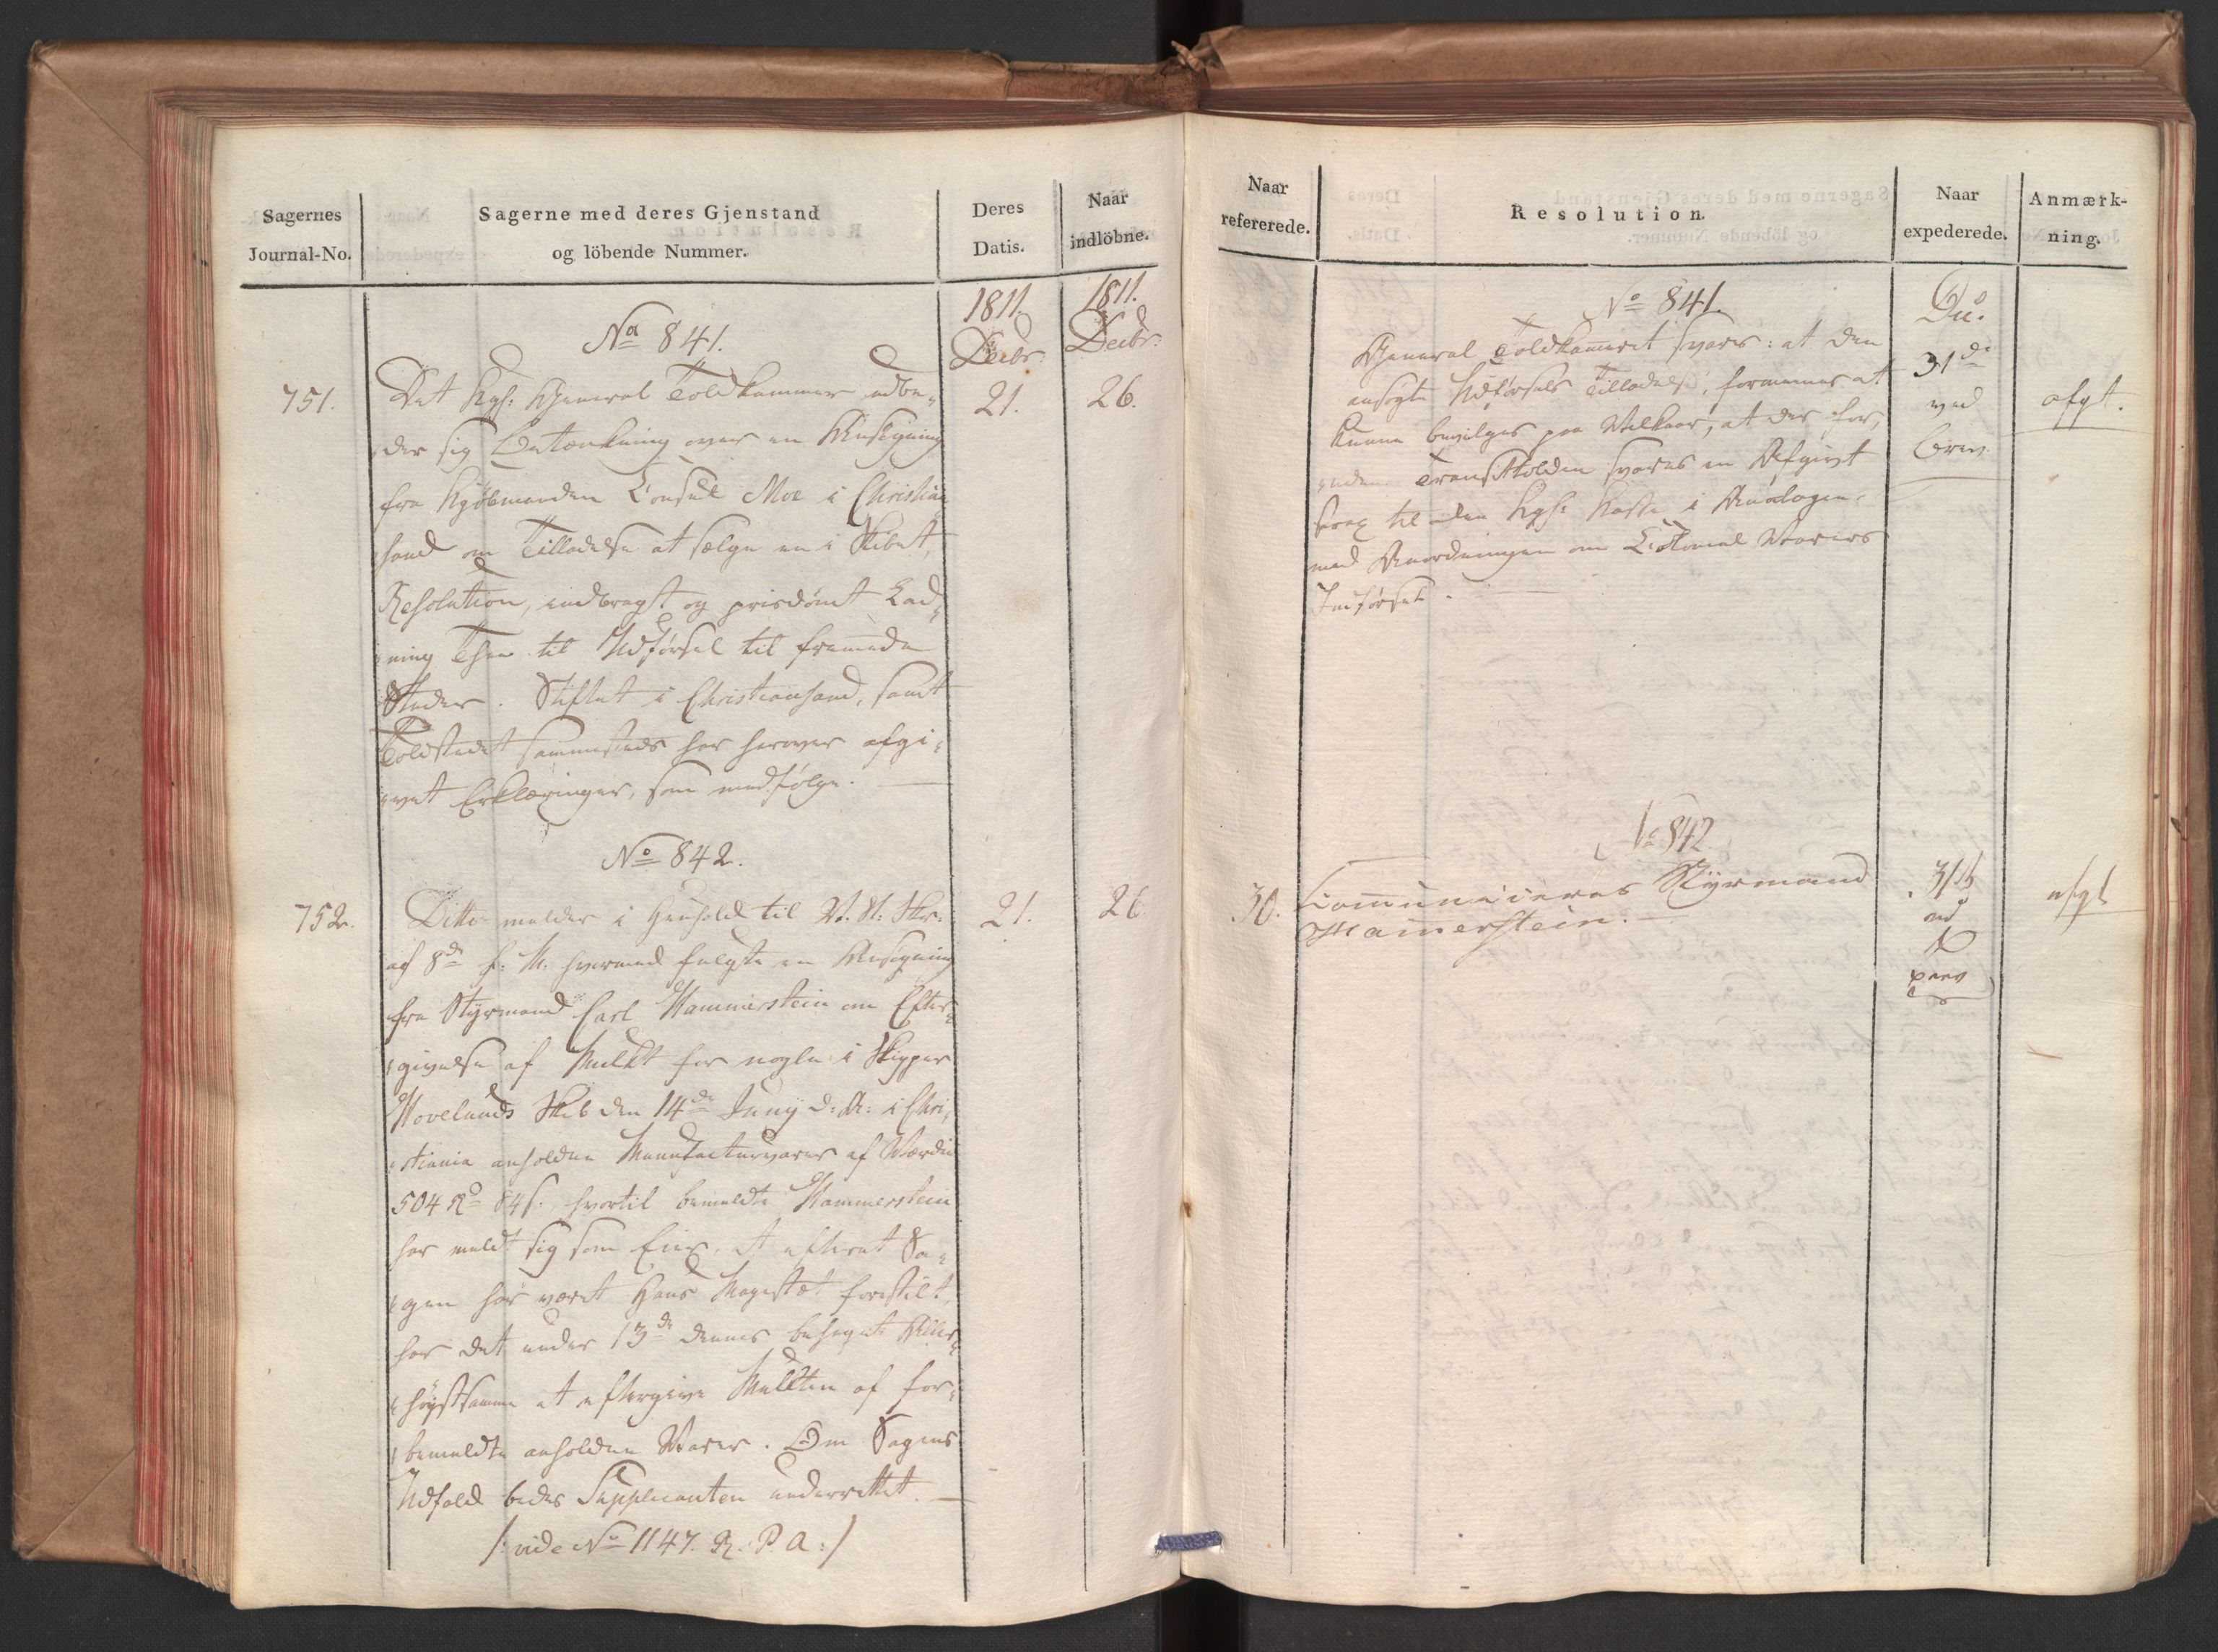 Sagernes
Journal-No.
Sagerne med deres Gjenstand
og löbende Nummer.
Deres
Datis.
Naar
indlöbne.
1811.
Decbr:
1811.
Decbr:
No 841.
751.
21.
26.
Det kgl: General Toldkammer udbe-
der sig Betænkning over en Ansøgning
fra Kjøbmanden Consul Moe i Christian
sand om Tilladelse at sælge en i Skibet,
Resolution, indbragt og priisdømt Lad-
ning Thee til Udførsel til fremmede
Stæder. Stiftet i Christiansand, samt
Toldstedet sammesteds har herover afgi-
vet Erklæringer, som medfølge.
No 842.
752.
21.
26
Ditto melder i Henhold til
af 8de f: M: hvormed fulgte en Ansøgning
fra Styrmand Carl Hammerstein om Efter-
givelse af Mulkt for nogle i Skipper
Hovelunds Skib den 14de Juny d: A: i Chri-
stiania anholdne Manufacturvarer af Værdie
504 Rd 84 s., hvortil bemeldte Hammerstein
har meldt sig som Eier, At efterat Sa-
gen har været Hans Majestæt forestilt,
har det under 13de dennes behaget Aller-
høystsamme at eftergive Mulkten af for-
bemeldte anholdne Varer. Om Sagens
Udfald bedes Supplicanten underrettet.
/: vide No 1147. R. P. A :/
Naar
refererede.
Resolution.
Naar
expederede.
Anmærk-
ning.
No 841.
General Toldkameret svares: at den
ansøgte Udførsels Tilladelse, formenes at
kunne bevilges paa Vilkaar, at der for,
uden Transittolden svares en Afgivt
strax til den kgl: Kasse i Analogie
med Anordningen om Colonial Varers
Indførsel.
Du.
31de
ved
Brev.
afgt.
No 842
30.
Communiceres Styrmand
Hamerstein.
31th
ved
afgt